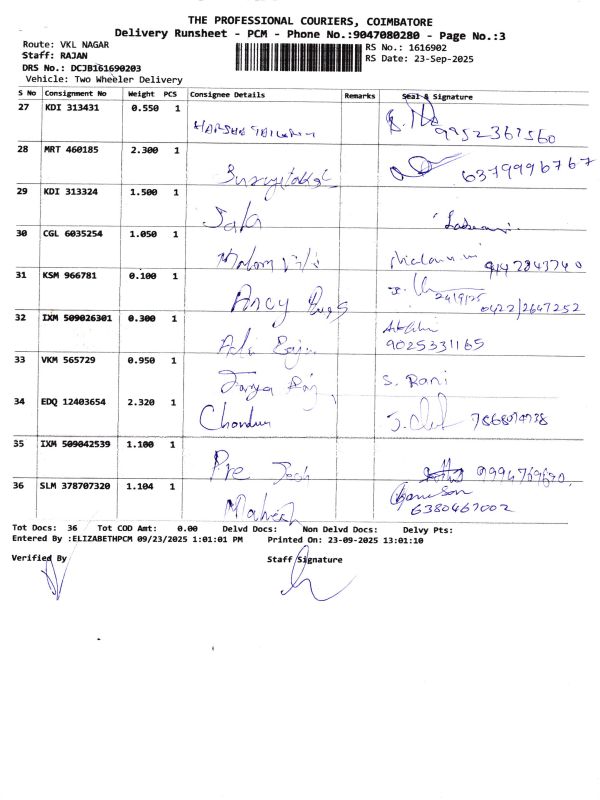 THE PROFESSIONAL COURIERS, COIMBATORE
Delivery Runsheet - PCM - Phone No.:9047080280 - Page No.:3
Route: VKL NAGAR
RS No.: 1616902
Staff: RAJAN
RS Date: 23-Sep-2025
DRS No.: DCJB161690203
Vehicle: Two Wheeler Delivery
S No Consignment No Weight PCS Consignee Details Remarks Seal & Signature
27 KDI 313431 0.550 1
9952361560
28 MRT 460185 2.300 1
6379996767
29 KDI 313324 1.500 1
30 CGL 6035254 1.050 1
9147843740
31 KSM 966781 0.100 1
Ancy
24/9/25
0422/2647252
32 IXM 509026301 0.300 1
9025331165
33 VKM 565729 0.950 1
S. Rani
34 EDQ 12403654 2.320 1
Chandru
35 IXM 509042539 1.100 1
36 SLM 378707320 1.104 1
Mahesh
6380467002
Tot Docs: 36 Tot COD Amt: 0.00 Delvd Docs: Non Delvd Docs: Delvy Pts:
Entered By :ELIZABETHPCM 09/23/2025 1:01:01 PM Printed On: 23-09-2025 13:01:10
Verified By Staff Signature